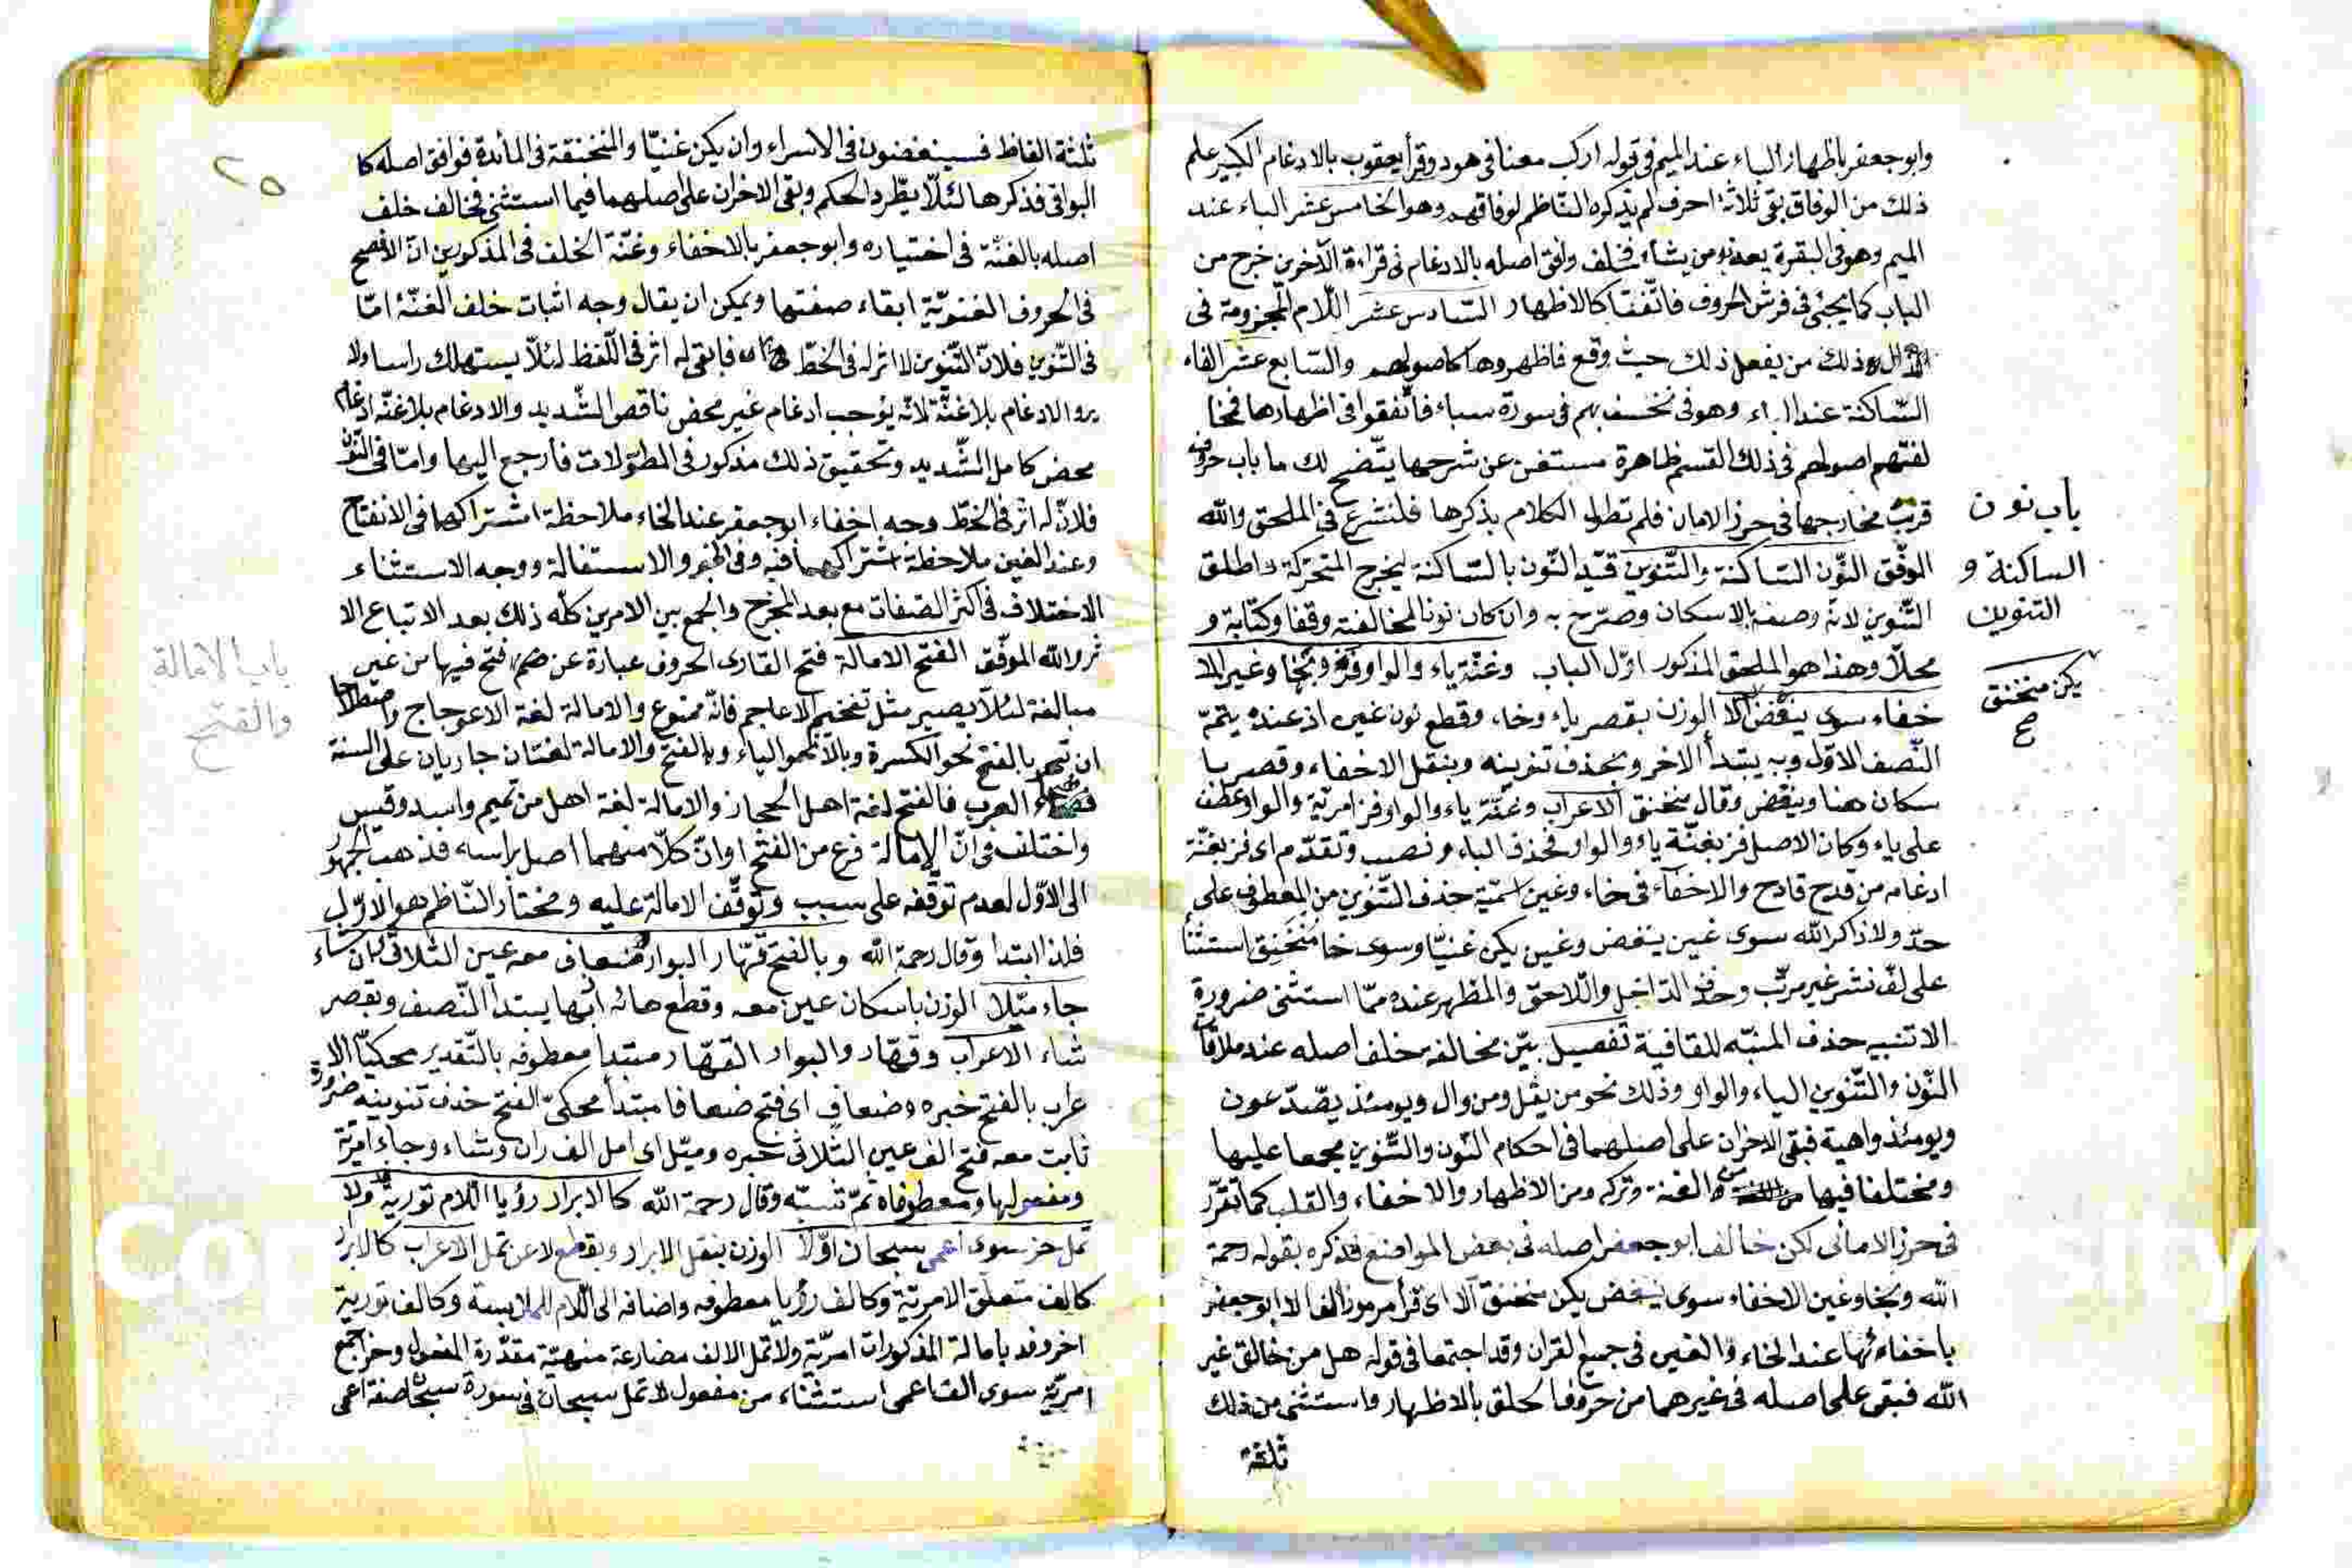 وابو جعفر باظهار الباء عند الميم فى قوله اركب معنا فى هود وقرأ يعقوب بالادغام الكبير علم
ذلك من الوفاق بقى ثلاثة احرف لم يذكره الناظم لوفاقهم وهو الخامس عشر الباء عند
الميم وهو فى البقرة يعذب من يشاء فخلف وافق اصله بالادغام فى قراءة الآخرين خرج من
الباب كما يجئ فى فرش الحروف فاتّفقا كالاظهار السّادس عشر اللّام المجزومة فى
ذلك من يفعل ذلك حيث وقع فاظهروها كاصولهم والسّابع عشر الفاء
السّاكنة عند الباء وهو فى نخسف بهم فى سورة سباء فاتّفقوا فى اظهارها
اصولهم فى ذلك القسم ظاهرة مستغن عن شرحها يتّضح لك ما باب حروف
قربت مخارجها فى حرز الامان فلم نطول الكلام بذكرها فلنشرع فى الملحق والله
الموفّق النّون السّاكنة والتّنوين قيّد النّون بالسّاكنة ليخرج المتحرّكة واطلق
التّنوين لانّه وصفه بالاسكان وصرّح به وان كان نونا لمخالفته وقفا وكتابة و
محلّا وهذا هو الملحق المذكور اوّل الباب وغنّة ياء والواو فز وبخا وغير الملا
خفاء سوى ينغض الا الوزن بقصر ياء وخا، وقطع نون غين اذ عنده يتمّ
النّصف الاوّل وبه يبتدأ الاخر وبحذف تنوينه وبنقل الاخفاء وقصر يا
سكان هنا وينغض وقال منخنق الاعراب وغنّة ياء والواو فز امريّة والواو عطف
على ياء وكان الاصل فز بغنّة ياء والواو فحذف الباء ونصب وتقدّم اى فز بغنّة
ادغامه من قدح قادح والاخفاء فى خاء وغين اسميّة حذف التّنوين من المعطوف على
حدّ ولا ذاكر الله سوى غين ينغض وغين يكن غنيّا وسوى خا منخنق استثنا
على لفّ نشر غير مرتّب وحذف الدّاخل واللّاحق والمظهر عنده ممّا استثنى ضرورة
الا تنبيه حذف المنبّه للقافية تفصيل بيّن مخالفة خلف اصله عند ملاقات
النّون والتّنوين الياء والواو وذلك نحو من يقل ومن وال ويومئذ يصّدّعون
ويومئذ واهية فبقى الاخران على اصلهما فى احكام النّون والتّنوين مجمعا عليها
ومختلفا فيها من الغنة وتركه ومن الاظهار والاخفاء والقلب كما تقرّر
فى حرز الامانى لكن خالف ابو جعفر اصله فى بعض المواضع فذكره بقوله رحمة
الله وبخا وغين الاخفاء سوى ينغض يكن منخنق الا اى قرأ مرموز الف الا ابو جعفر
باخفائها عند الخاء والغين فى جميع القران وقد اجتمعا فى قوله هل من خالق غير
الله فبقى على اصله فى غيرهما من حروف الحلق بالاظهار واستثنى من ذلك
ثلثة
باب نون
الساكنة و
التنوين
يكن منخنق
ح
٢٥
ثلثة الفاظ فسينغضون فى الاسراء وان يكن غنيّا والمنخنقة فى المائدة فوافق اصله كا
البواقى فذكرها لئلّا يطّرد الحكم وبقى الاخران على اصلهما فيما استثنى فخالف خلف
اصله بالغنّة فى اختياره وابو جعفر بالاخفاء وغنّة الخلف فى المذكورين انّ الافصح
فى الحروف الغنويّة ابقاء صفتها ويمكن ان يقال وجه اثبات خلف الغنّة امّا
فى التّنوين فلانّ التّنوين لا اثر له فى الخطّ فابقى له اثر فى اللّفظ لئلّا يستهلك راسا ولا
يرو الادغام بلاغنّة لانّه يوجب ادغام غير محض ناقص التّشديد والادغام بلاغنّة ادغام
محض كامل التّشديد وتحقيق ذلك مذكور فى المطوّلات فارجع اليها وامّا فى النّون
فلانّ له اثر فى الخطّ وجه اخفاء ابو جعفر عند الخاء ملاحظة اشتراكهما فى الانفتاح
وعند الغين ملاحظة اشتراكهما فيه وفى الجهر والاستفالة ووجه الاستثناء
الاختلاف فى اكثر الصّفات مع بعد المخرج والجمع بين الامرين كلّه ذلك بعد الاتباع الا
ثر والله الموفّق الفتح الامالة فتح القارى الحروف عبارة عن ضمّ فتح فيها من غير
مبالغة لئلّا يصير مثل تفخيم الاعاجم فانّه ممنوع والامالة لغة الاعوجاج واصطلاحا
ان تنحو بالفتح نحو الكسرة وبالالف نحو الياء وبالفتح والامالة لغتان جاريان على السنة
فصحاء العرب فالفتح لغة اهل الحجاز والامالة لغة اهل من تميم واسد وقيس
واختلف فى انّ الامالة فرع من الفتح او انّ كلّا منهما اصل براسه فذهب الجمهور
الى الاوّل لعدم توقّفه على سبب وتوقّف الامالة عليه ومختار النّاظم هو الاوّل
فلذا ابتدا وقال رحمة الله وبالفتح قهّار البوار ضعاف معه عين الثلاثى ران شاء
جاء ميّلا الوزن باسكان عين معه وقطع هائه اذ بها يبتدأ النّصف وبقصر
شاء الاعراب وقهّار والبوار القهّار مبتدا معطوفه بالتّقدير محكيّا الا
عراب بالفتح خبره وضعاف اى فتح ضعافا مبتدأ محكىّ الفتح حذف تنوينه ضرورة
ثابت معه فتح الف عين الثّلاثى خبره وميّل اى امل الف ران وشاء وجاء امريّة
ومفعولها ومعطوفاه ثمّ تنبّه وقال رحمة الله كالابرار رؤيا اللّام تورية فد ولا
تمل حز سوى اعمى بسبحان اوّلا الوزن بنقل الابرار وبقطع لا عن تمل الاعراب كالابرار
كالف متعلّق الامريّة وكالف رؤيا معطوفه واضافه الى اللّام للملابسة وكالف تورية
اخر وفد بامالة المذكورات امريّة ولا تمل الالف مضارعة منهيّة مقدّرة المفعول وحز اجمع
امريّة سوى الف اعمى استثناء من مفعول لا تمل سبحان فى سورة سبحان صفة اعمى
باب الامالة
والفتح